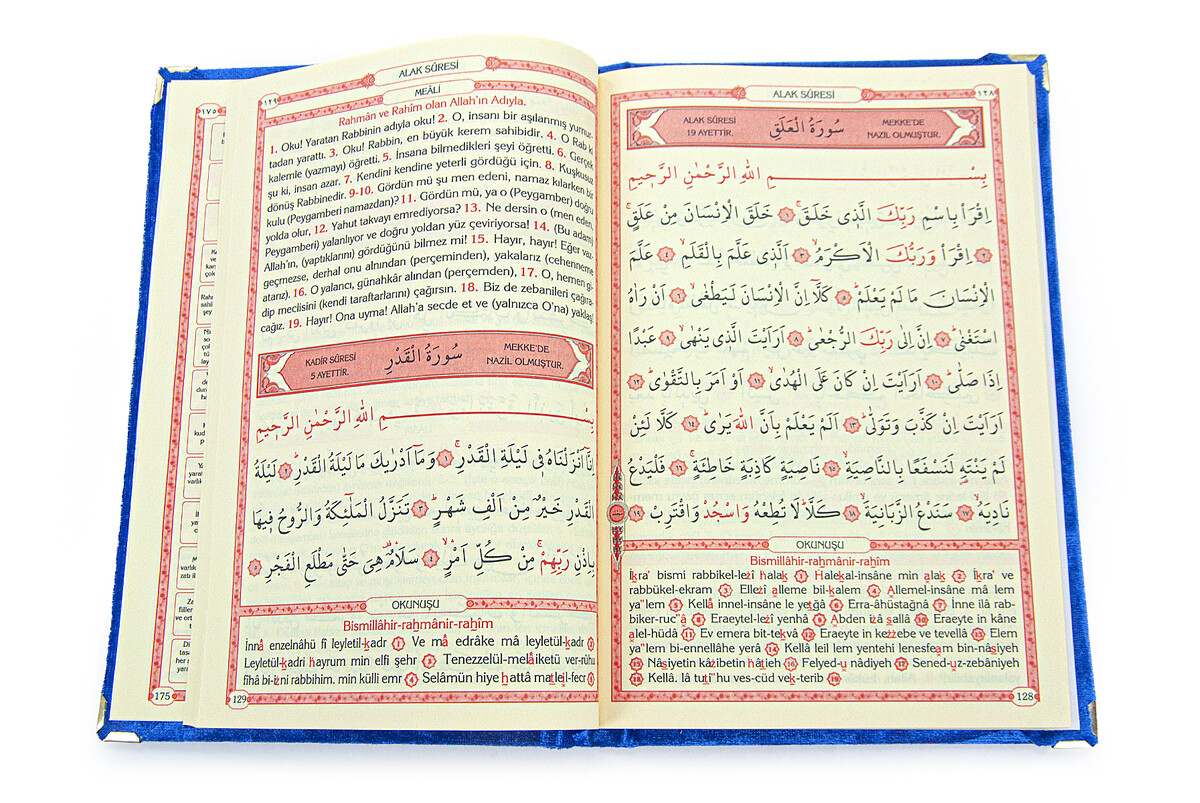 ALAK SÛRESİ
١٢٨
ALAK SÛRESİ
19 AYETTİR.
سُورَةُ الْعَلَقِ
MEKKE'DE
NAZİL OLMUŞTUR.
بِسْــــــــــــــــــمِ اللهِ الرَّحْمٰنِ الرَّحٖيمِ
اِقْرَاْ بِاسْمِ رَبِّكَ الَّذٖى خَلَقَۚ ﴿١﴾ خَلَقَ الْاِنْسَانَ مِنْ عَلَقٍۚ
﴿٢﴾ اِقْرَاْ وَرَبُّكَ الْاَكْرَمُۙ ﴿٣﴾ اَلَّذٖى عَلَّمَ بِالْقَلَمِۙ ﴿٤﴾ عَلَّمَ
الْاِنْسَانَ مَا لَمْ يَعْلَمْؕ ﴿٥﴾ كَلَّٓا اِنَّ الْاِنْسَانَ لَيَطْغٰىۙ ﴿٦﴾ اَنْ رَاٰهُ
اسْتَغْنٰىؕ ﴿٧﴾ اِنَّ اِلٰى رَبِّكَ الرُّجْعٰىؕ ﴿٨﴾ اَرَاَيْتَ الَّذٖى يَنْهٰىۙ ﴿٩﴾ عَبْدًا
اِذَا صَلّٰىؕ ﴿١٠﴾ اَرَاَيْتَ اِنْ كَانَ عَلَى الْهُدٰىۙ ﴿١١﴾ اَوْ اَمَرَ بِالتَّقْوٰىؕ ﴿١٢﴾
اَرَاَيْتَ اِنْ كَذَّبَ وَتَوَلّٰىؕ ﴿١٣﴾ اَلَمْ يَعْلَمْ بِاَنَّ اللهَ يَرٰىؕ ﴿١٤﴾ كَلَّا لَئِنْ
لَمْ يَنْتَهِ لَنَسْفَعًا بِالنَّاصِيَةِۙ ﴿١٥﴾ نَاصِيَةٍ كَاذِبَةٍ خَاطِئَةٍۚ ﴿١٦﴾ فَلْيَدْعُ
نَادِيَهُۙ ﴿١٧﴾ سَنَدْعُ الزَّبَانِيَةَۙ ﴿١٨﴾ كَلَّاؕ لَا تُطِعْهُ وَاسْجُدْ وَاقْتَرِبْ ﴿١٩﴾
OKUNUŞU
Bismillâhir-raḥmânir-raḥîm
İḳra' bismi rabbikel-leẕî ḫalaḳ (1) Ḫaleḳal-insâne min ạlaḳ (2) İḳra' ve
rabbükel-ekram (3) Elleẕî ạlleme bil-ḳalem (4) Ạllemel-insâne mâ lem
yạ''lem (5) Kellâ innel-insâne le yeṭğâ (6) Erra-âhüstağnâ (7) İnne ilâ rab-
biker-ruc'â (8) Eraeytel-leẕî yenhâ (9) Ạbden iẕâ ṣallâ (10) Eraeyte in kâne
ạlel-hüdâ (11) Ev emera bit-teḳvâ (12) Eraeyte in keẕẕebe ve tevellâ (13) Elem
yạ''lem bi-ennellâhe yerâ (14) Kellâ leil lem yentehi lenesfeạm bin-nâṣiyeh
(15) Nâṣiyetin kâẕibetin ḫâṭieh (16) Felyed-ụ nâdiyeh (17) Sened-ụz-zebâniyeh
(18) Kellâ. lâ tuṭı''hu ves-cüd veḳ-terib (19)
128
ALAK SÛRESİ
١٢٩
MEÂLİ
Rahmân ve Rahîm olan Allah'ın Adıyla.
1. Oku! Yaratan Rabbinin adıyla oku! 2. O, insanı bir aşılanmış yumur-
tadan yarattı. 3. Oku! Rabbin, en büyük kerem sahibidir. 4. O Rab ki
kalemle (yazmayı) öğretti. 5. İnsana bilmedikleri şeyi öğretti. 6. Gerçek
şu ki, insan azar. 7. Kendini kendine yeterli gördüğü için. 8. Kuşkusuz
dönüş Rabbinedir. 9-10. Gördün mü şu men edeni, namaz kılarken bir
kulu (Peygamberi namazdan)? 11. Gördün mü, ya o (Peygamber) doğru
yolda olur, 12. Yahut takvayı emrediyorsa? 13. Ne dersin o (men eden,
Peygamberi) yalanlıyor ve doğru yoldan yüz çeviriyorsa! 14. (Bu adam)
Allah'ın, (yaptıklarını) gördüğünü bilmez mi! 15. Hayır, hayır! Eğer vaz-
geçmezse, derhal onu alnından (perçeminden), yakalarız (cehenneme
atarız). 16. O yalancı, günahkâr alından (perçemden), 17. O, hemen gi-
dip meclisini (kendi taraftarlarını) çağırsın. 18. Biz de zebanileri çağıra-
cağız. 19. Hayır! Ona uyma! Allah'a secde et ve (yalnızca O'na) yaklaş!
KADİR SÛRESİ
5 AYETTİR.
سُورَةُ الْقَدْرِ
MEKKE'DE
NAZİL OLMUŞTUR.
بِسْــــــــــــــــــمِ اللهِ الرَّحْمٰنِ الرَّحٖيمِ
اِنَّٓا اَنْزَلْنَاهُ فٖى لَيْلَةِ الْقَدْرِۚ ﴿١﴾ وَمَٓا اَدْرٰيكَ مَا لَيْلَةُ الْقَدْرِؕ ﴿٢﴾ لَيْلَةُ
الْقَدْرِ خَيْرٌ مِنْ اَلْفِ شَهْرٍؕ ﴿٣﴾ تَنَزَّلُ الْمَلٰٓئِكَةُ وَالرُّوحُ فٖيهَا
بِاِذْنِ رَبِّهِمْۚ مِنْ كُلِّ اَمْرٍۙ ﴿٤﴾ سَلَامٌ هِىَ حَتّٰى مَطْلَعِ الْفَجْرِ ﴿٥﴾
OKUNUŞU
Bismillâhir-raḥmânir-raḥîm
İnnâ enzelnâhü fî leyletil-ḳadr (1) Ve mâ edrâke mâ leyletül-ḳadr (2)
Leyletül-ḳadri ḫayrum min elfi şehr (3) Tenezzelül-melâiketü ver-rûhu
fîhâ bi-iẕni rabbihim. min külli emr (4) Selâmün hiye ḥattâ maṭleıl-fecr (5)
129
١٧٥
175